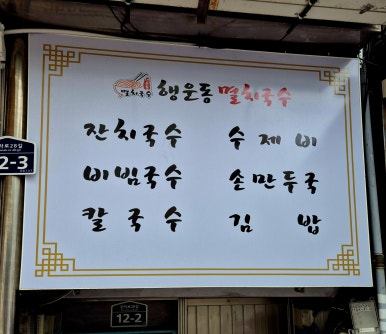 멸치국수 행운동 멸치국수
잔치국수 수제비
비빔국수 손만두국
칼국수 김밥
2-3
12-2